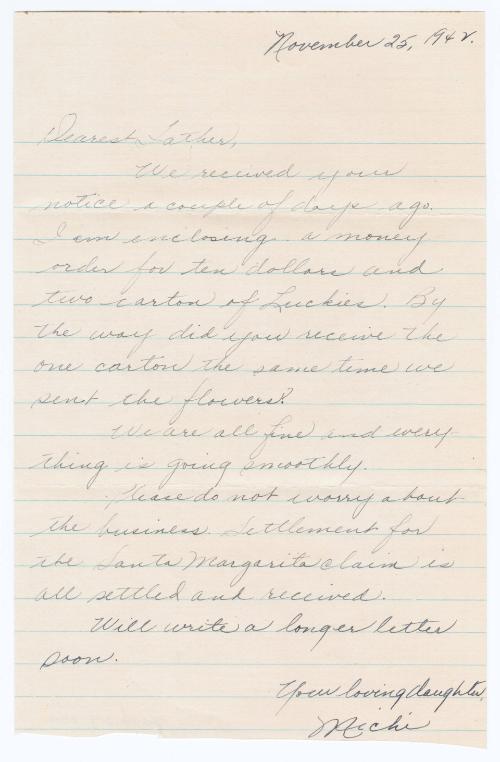 November 25, 1942.
Dearest Father,
We received your
notice a couple of days ago.
I am enclosing a money
order for ten dollars and
two carton of Luckies. By
the way did you receive the
one carton the same time we
sent the flowers?
We are all fine and every
thing is going smoothly.
Please do not worry about
the business. Settlement for
the Santa Margarita claim is
all settled and received.
Will write a longer letter
soon.
Your loving daughter,
Michi